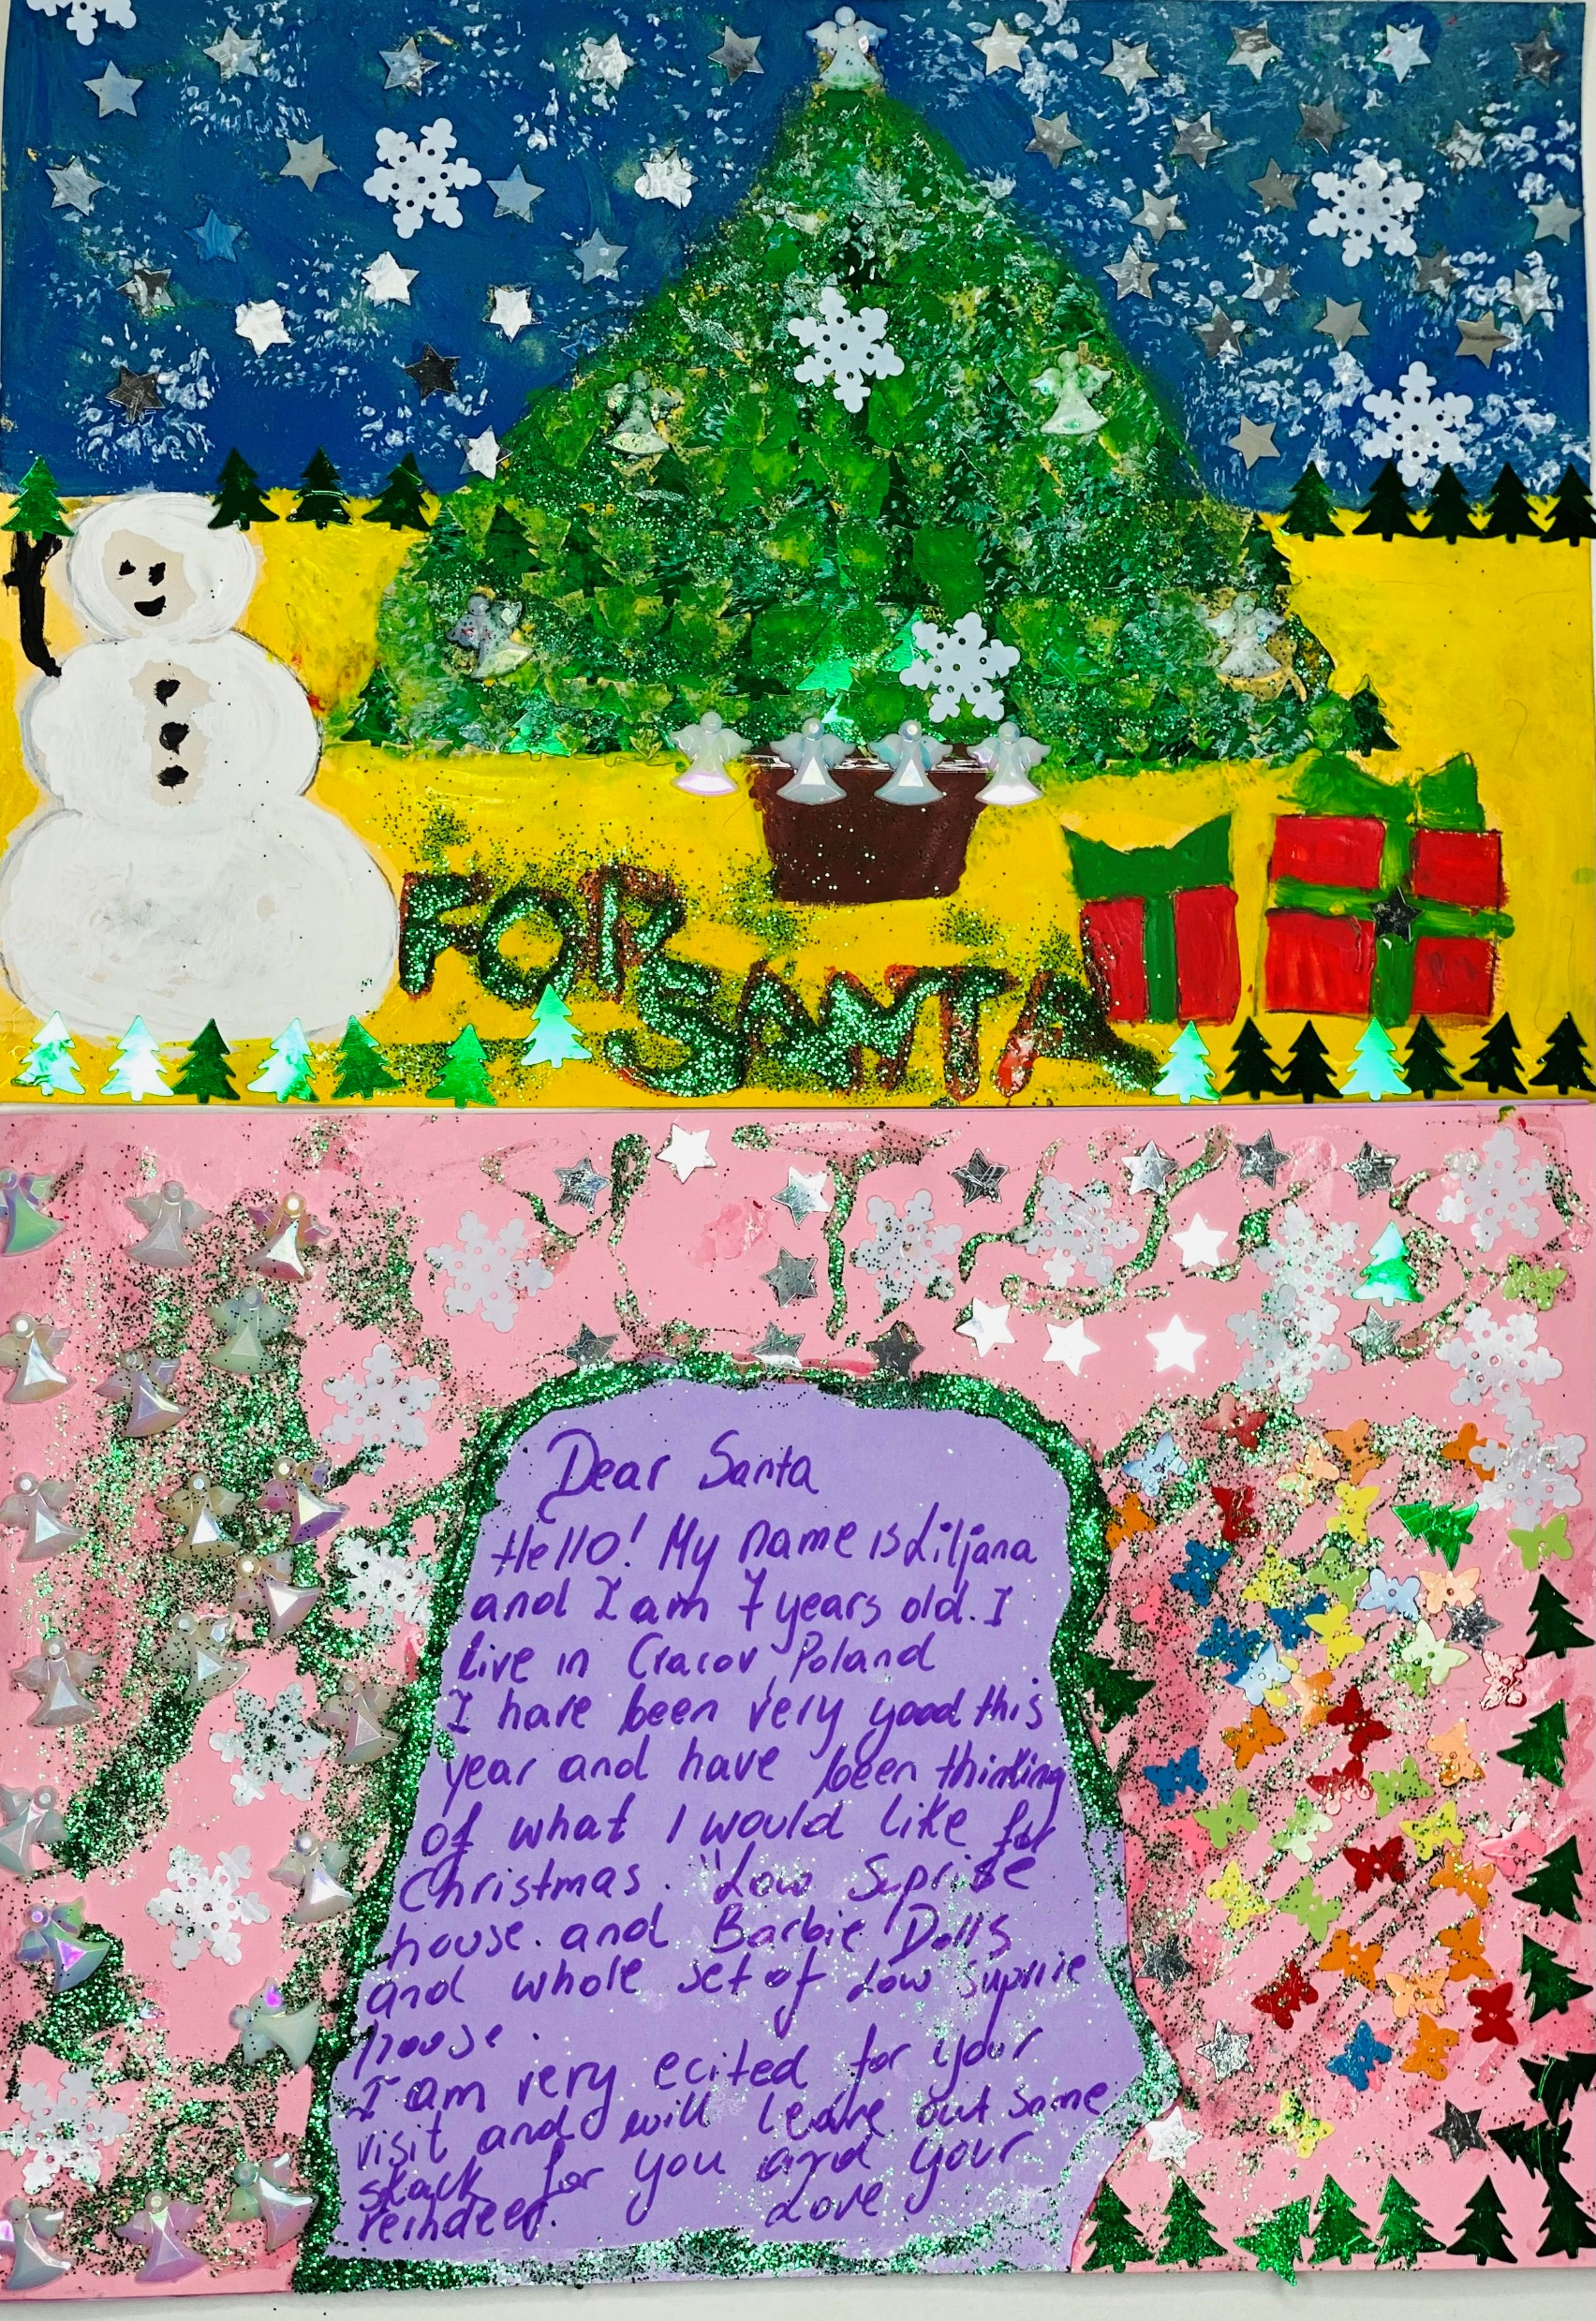 FOR
SANTA
Dear Santa
Hello! My name is Liljana
and I am 7 years old. I
live in Cracov Poland
I have been very good this
year and have been thinking
of what I would like for
Christmas. "Low Suprise
house. and Barbie Dolls
and whole set of Low suprise
house.
I am very ecited for your
visit and will leave out some
skack for you and your
reindeer. Love